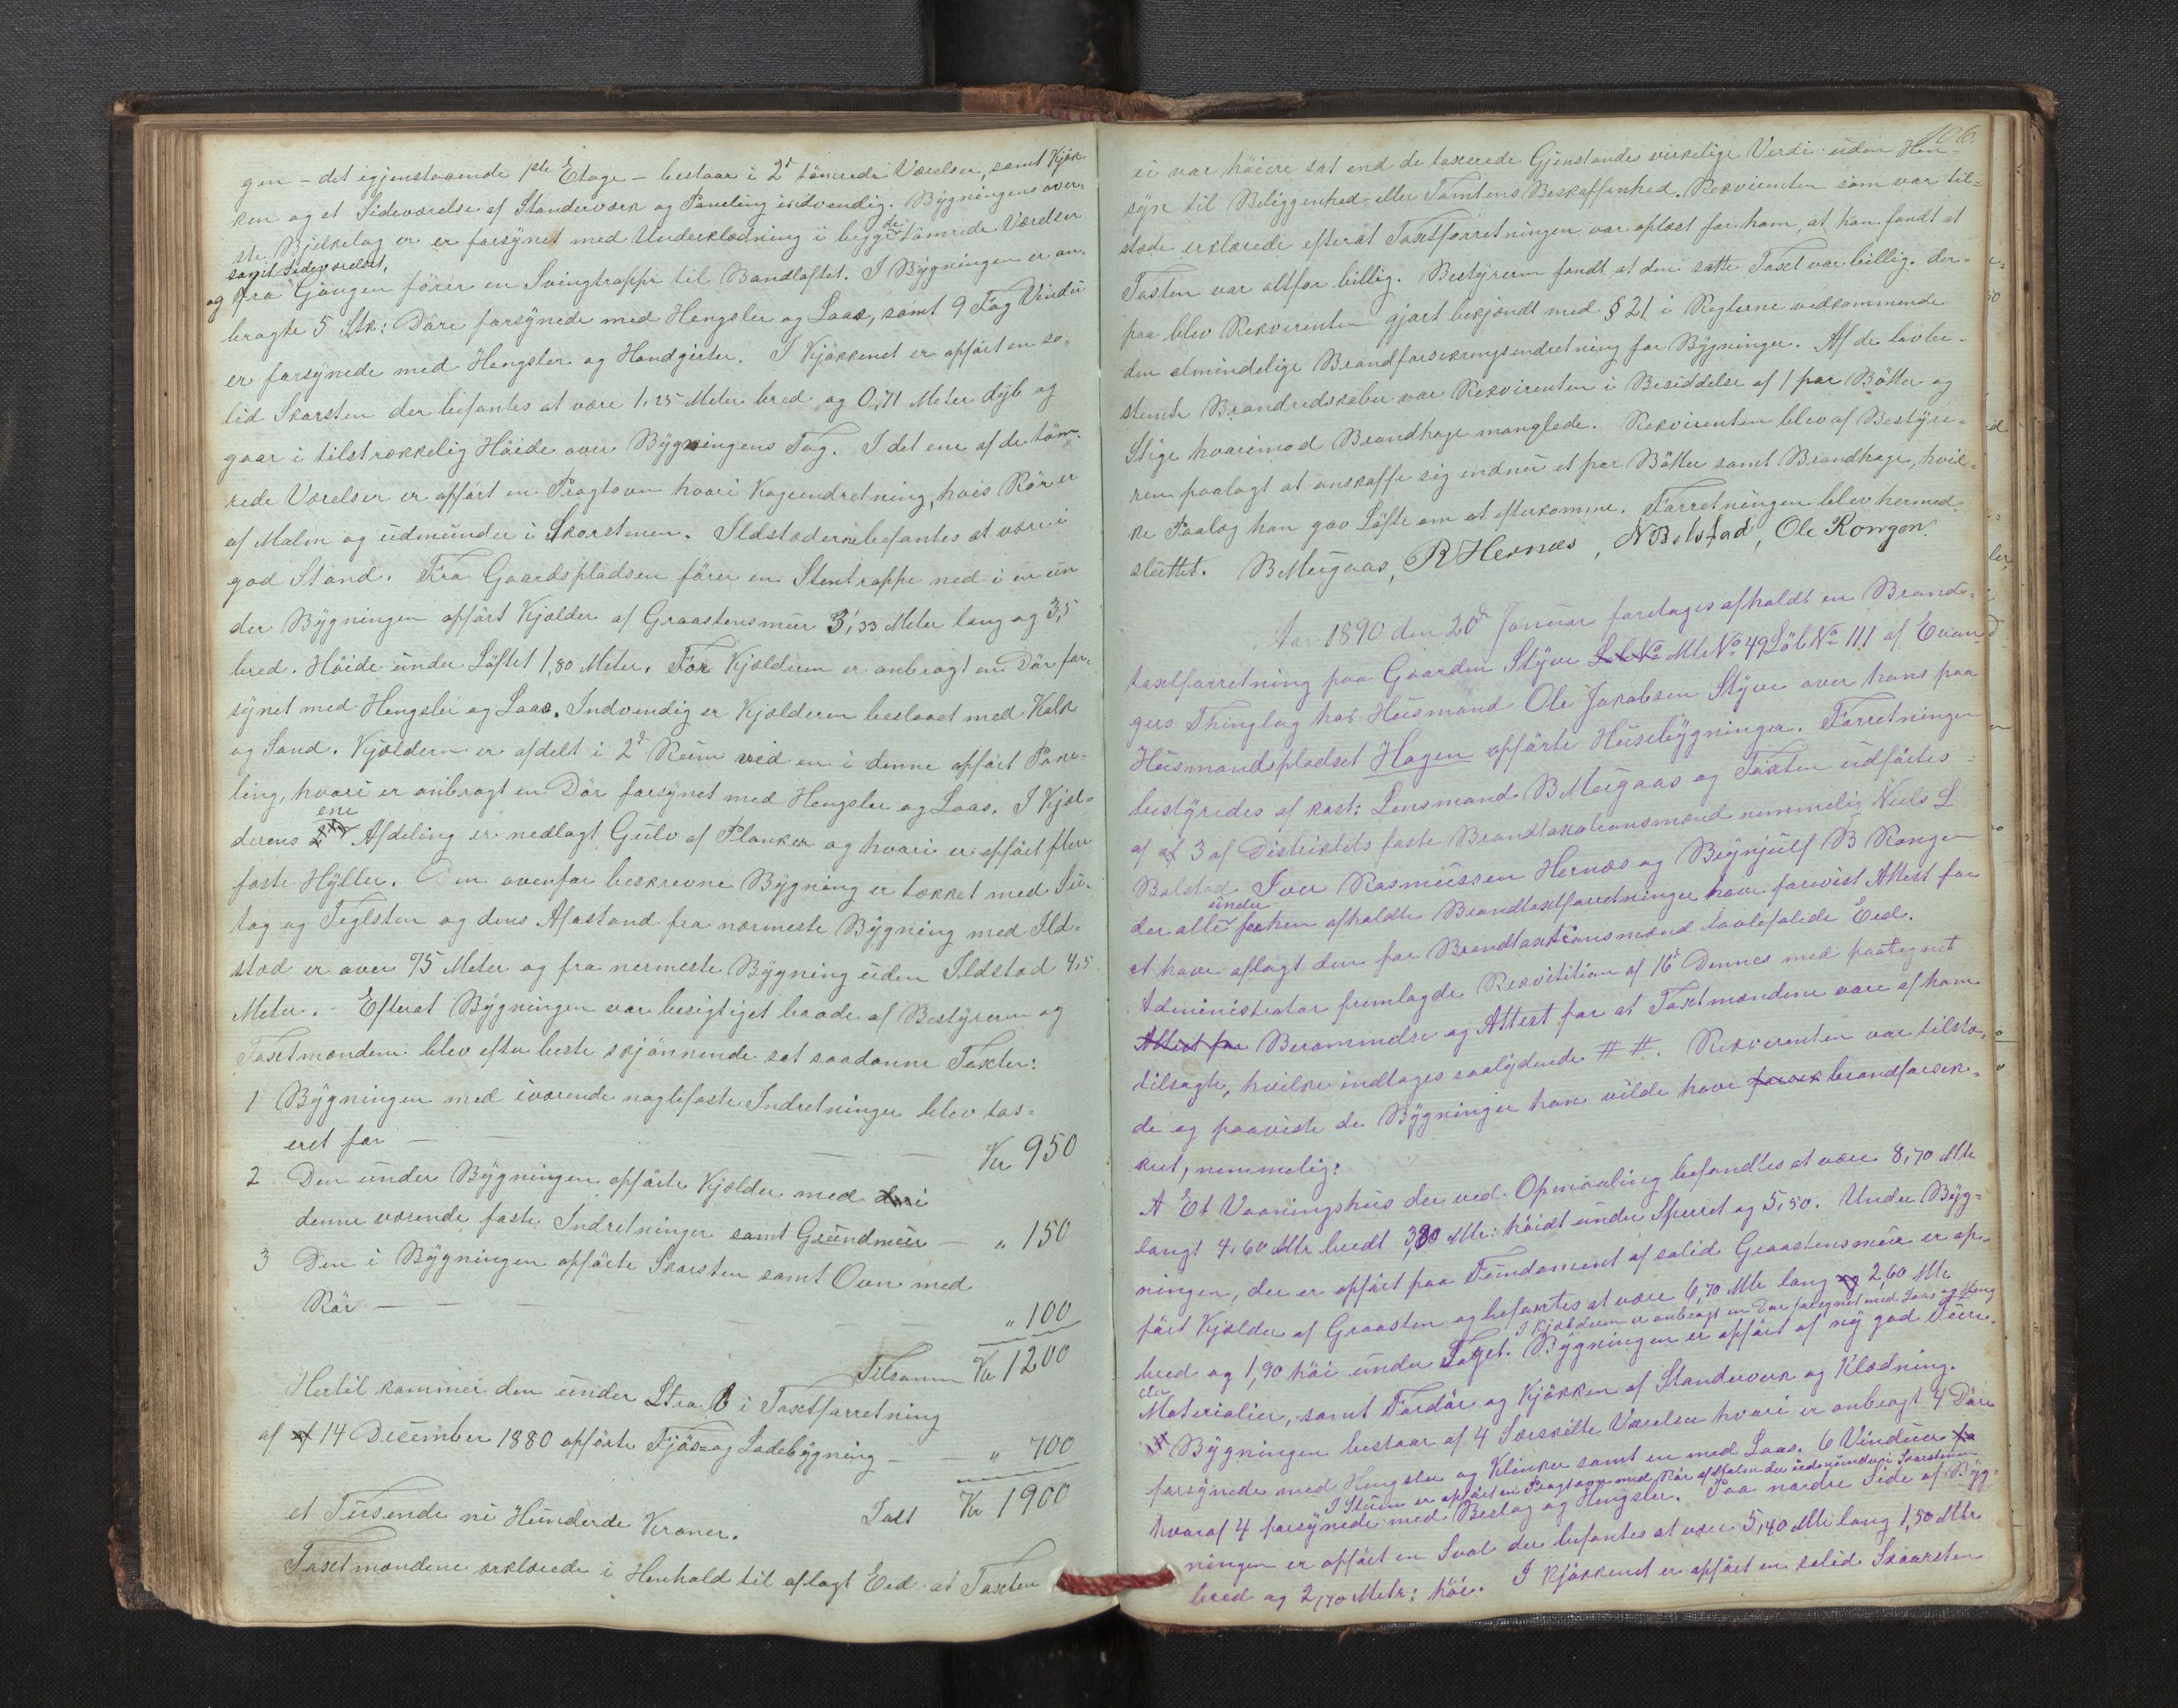 gen - det igjenstaaende 1ste Etage - bestaar i 2de tömrede Værelser, samt Kjök-
ken og et Sideværelse af Standerværk og Paneling indvendig. Bygningens över-
ste Bjelkelag er er forsynet med Underklædning i begge de tömrede Værelser
samt Sideværelset,
og fra Gangen förer en Svingtrappe til Bandloftet. I Bygningen er an-
bragte 5 Stk: Döre forsynede med Hengsler og Laas, samt 9 Fag Vindu
er forsynede med Hengsler og Haandgreter. I Kjökkenet er opfört en so-
lid Skorsten der befantes at være 1,25 Meter bred og 0,71 Meter dyb og
gaar i tilstrækkelig Höide over Bygningens Tag. I det ene af de töm-
rede Værelser er opfört en Pragtovn hvori Kogeindretning, hvis Rör er
af Malm og udmunder i Skorstenen. Ildstederne befantes at være i
god Stand. Fra Gaardspladsen förer en Stentrappe ned i en un
der Bygningen opfört Kjælder af Graastensmur 3,33 Meter lang og 3,5
bred. Höide under Löftet 1,80 Meter. For Kjælderen er anbragt en Dör for-
synet med Hengsler og Laas. Indvendig er Kjælderen beslaaet med Kalk
og Sand. Kjælderen er afdelt i 2de Rum ved en i denne opfört Pane-
ling, hvori er anbragt en Dör forsynet med Hengsler og Laas. I Kjæl-
ene
derens Afdeling er nedlagt Gulv af Planker og hvori er opfört flere
faste Hyller. Den ovenfor beskrevne Bygning er tækket med Su-
tag og Teglsten og dens Afastand fra nærmeste Bygning med Ild-
sted er over 95 Meter og fra nermeste Bygning uden Ildsted 4,5
Meter. - Efterat Bygningen var besigtiget baade af Bestyreren og
Taxtmændene blev efter beste skjönnende sat saadanne Taxter:
1 Bygningen med iværende naglefaste Indretninger blev tax-
eret for — — — Kr 950
2 Den under Bygningen opförte Kjælder med
denne værende faste Indretninger samt Grundmur — " 150
3 Den i Bygningen opförte Skorsten samt Ovn med
Rör — — — — — " 100
Tilsamm Kr 1200
Hertil kommer den under Ltra B i Taxtforretning
af 14 December 1880 opförte Fjös- og Ladebygning — " 700
Ialt Kr 1900
et Tusende ni Hunderde Kroner.
Taxtmændene erklærede i Henhold til aflagt Eed at Taxten
106.
ei var höiere sat end de taxerede Gjenstandes virkelige Verdi uden Hen-
syn til Beliggenhed eller Tomtens Beskaffenhed. Rekvirenten som var til-
stede erklærede efterat Taxtforretningen var oplæst for ham, at han fandt at
Taxten var altfor billig. Bestyreren fandt at den satte Taxt var billig. der-
paa blev Rekvirenten gjort bekjendt med § 21 i Reglerne vedkommende
den almindelige Brandforsikringsindretning for Bygninger. Af de lovbe-
stemte Brandredskaber var Rekvirenten i Besiddelse af 1 par Bötter og
Stige hvorimod Brandhage manglede. Rekvirenten blev af Bestyre-
ren paalagt at anskaffe sig endnu et par Bötter samt Brandhage, hvil-
ke Paalæg han gav Löfte om at efterkomme. Forretningen blev hermed
sluttet. B Mugaas, R Hernæs, N Bolstad, Ole Rongen.
Aar 1890 den 20de Januar foretages afholdt en Brand-
taxtforretning paa Gaarden Styve Mtr No 49 Löb No 111 af Evan-
gers Thinglag hos Husmand Ole Jakobsen Styve over hans paa
Husmandspladset Hagen opförte Husebygninger. Forretningen
bestyredes af kost: Lensmand B Mugaas og Taxten udförtes
af af 3 af Distriktets faste Brandtaxationsmænd nemmelig Niels L
Bolstad Iver Rasmussen Hernæs og Brynjulf B Rongen
under
der alle forhen afholdte Brandtaxtforretninger have forevist Attest for
at have aflagt den for Brandtaxtionsmænd lovbefalede Eed.
Administrator fremlagde Rekvisition af 16de Dennes med paategnet
Attest for Berammelse og Attest for at Taxtmændene vare af ham
tilsagte, hvilke indtages saalydende # #. Rekvirenten var tilste-
de og paaviste de Bygninger han vilde have forsek brandforsik-
ret, nemmelig:
A Et Vaaningshus der ved Opmaaling befandtes at være 8,70 Mtr
langt 4,60 Mtr bredt 3,80 Mtr: höidt under Sperret og 5,50. Under Byg-
ningen, der er opfört paa Fundament af solid Graastensmur er op-
fört Kjælder af Graasten og befantes at være 6,70 Mtr lang og 2,60 Mtr
I Kjælderen er anbragt en Dör forsynet med Laas og Heng
bred og 1,90 höi under Taget. Bygningen er opfört af ny god Fure
sler
Materialier, samt Fordör og Kjökken af Standerverk og Klædning.
Bygningen bestaar af 4 Særskilte Værelser hvori er anbragt 4 Döre
forsynede med Hengsler og Klinker samt en med Laas. 6 Vinduer
I Stuen er opfört en Pragtovn med Rör af Malm der udmunder i Skorstenen
hvoraf 4 forsynede med Beslag og Hengsler. Paa nordre Side af Byg-
ningen er opfört en Sval der befantes at være 5,40 Mtr lang 1,50 Mtr
bred og 2,70 Metr: höi. I Kjökkenet er opfört en solid Skaarsten